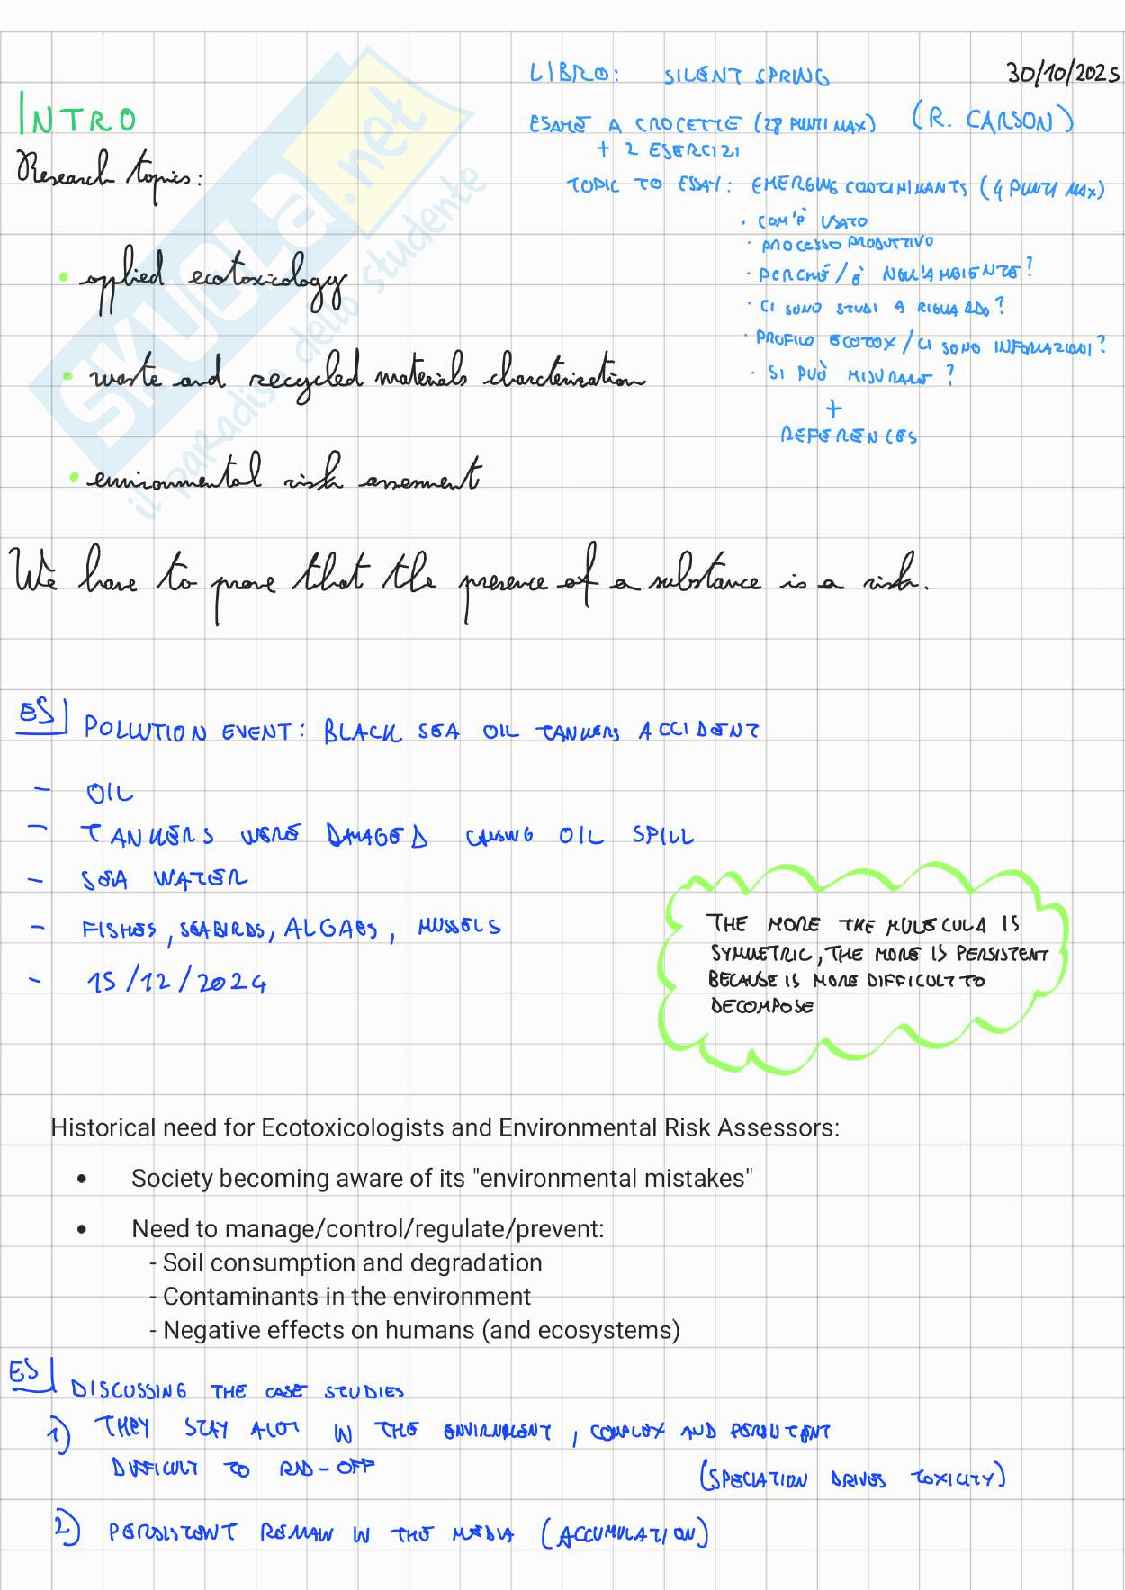 LIBRO: SILENT SPRING
30/10/2025
INTRO
ESAME A CROCETTE (28 PUNTI MAX) (R. CARSON)
+ 2 ESERCIZI
Research topics:
TOPIC TO ESSAY: EMERGING CONTAMINANTS (4 PUNTI MAX)
· COM'È USATO
· PROCESSO PRODUTTIVO
• applied ecotoxicology
· PERCHÉ / È NELL'AMBIENTE?
· CI SONO STUDI A RIGUARDO?
· PROFILO ECOTOX / CI SONO INFORMAZIONI?
• waste and recycled materials charcterization
· SI PUÒ MISURARE?
+
REFERENCES
• environmental risk assessment
We have to prove that the presence of a substance is a risk.
ES POLLUTION EVENT: BLACK SEA OIL TANKERS ACCIDENT
- OIL
- TANKERS WERE DAMAGED CAUSING OIL SPILL
- SEA WATER
- FISHES, SEABIRDS, ALGAES, MUSSELS
- 15/12/2024
THE MORE THE MOLECULA IS
SYMMETRIC, THE MORE IS PERSISTENT
BECAUSE IS MORE DIFFICULT TO
DECOMPOSE
Historical need for Ecotoxicologists and Environmental Risk Assessors:
• Society becoming aware of its "environmental mistakes"
• Need to manage/control/regulate/prevent:
- Soil consumption and degradation
- Contaminants in the environment
- Negative effects on humans (and ecosystems)
ES DISCUSSING THE CASE STUDIES
1) THEY STAY ALOT IN THE ENVIRNMENT, COMPLEX AND PERSISTENT
DIFFICULT TO RID-OFF
(SPECIATION DRIVES TOXICITY)
2) PERSISTENT REMAIN IN THE MEDIA (ACCUMULATION)
SKUOLA.net
il paradiso dello studente